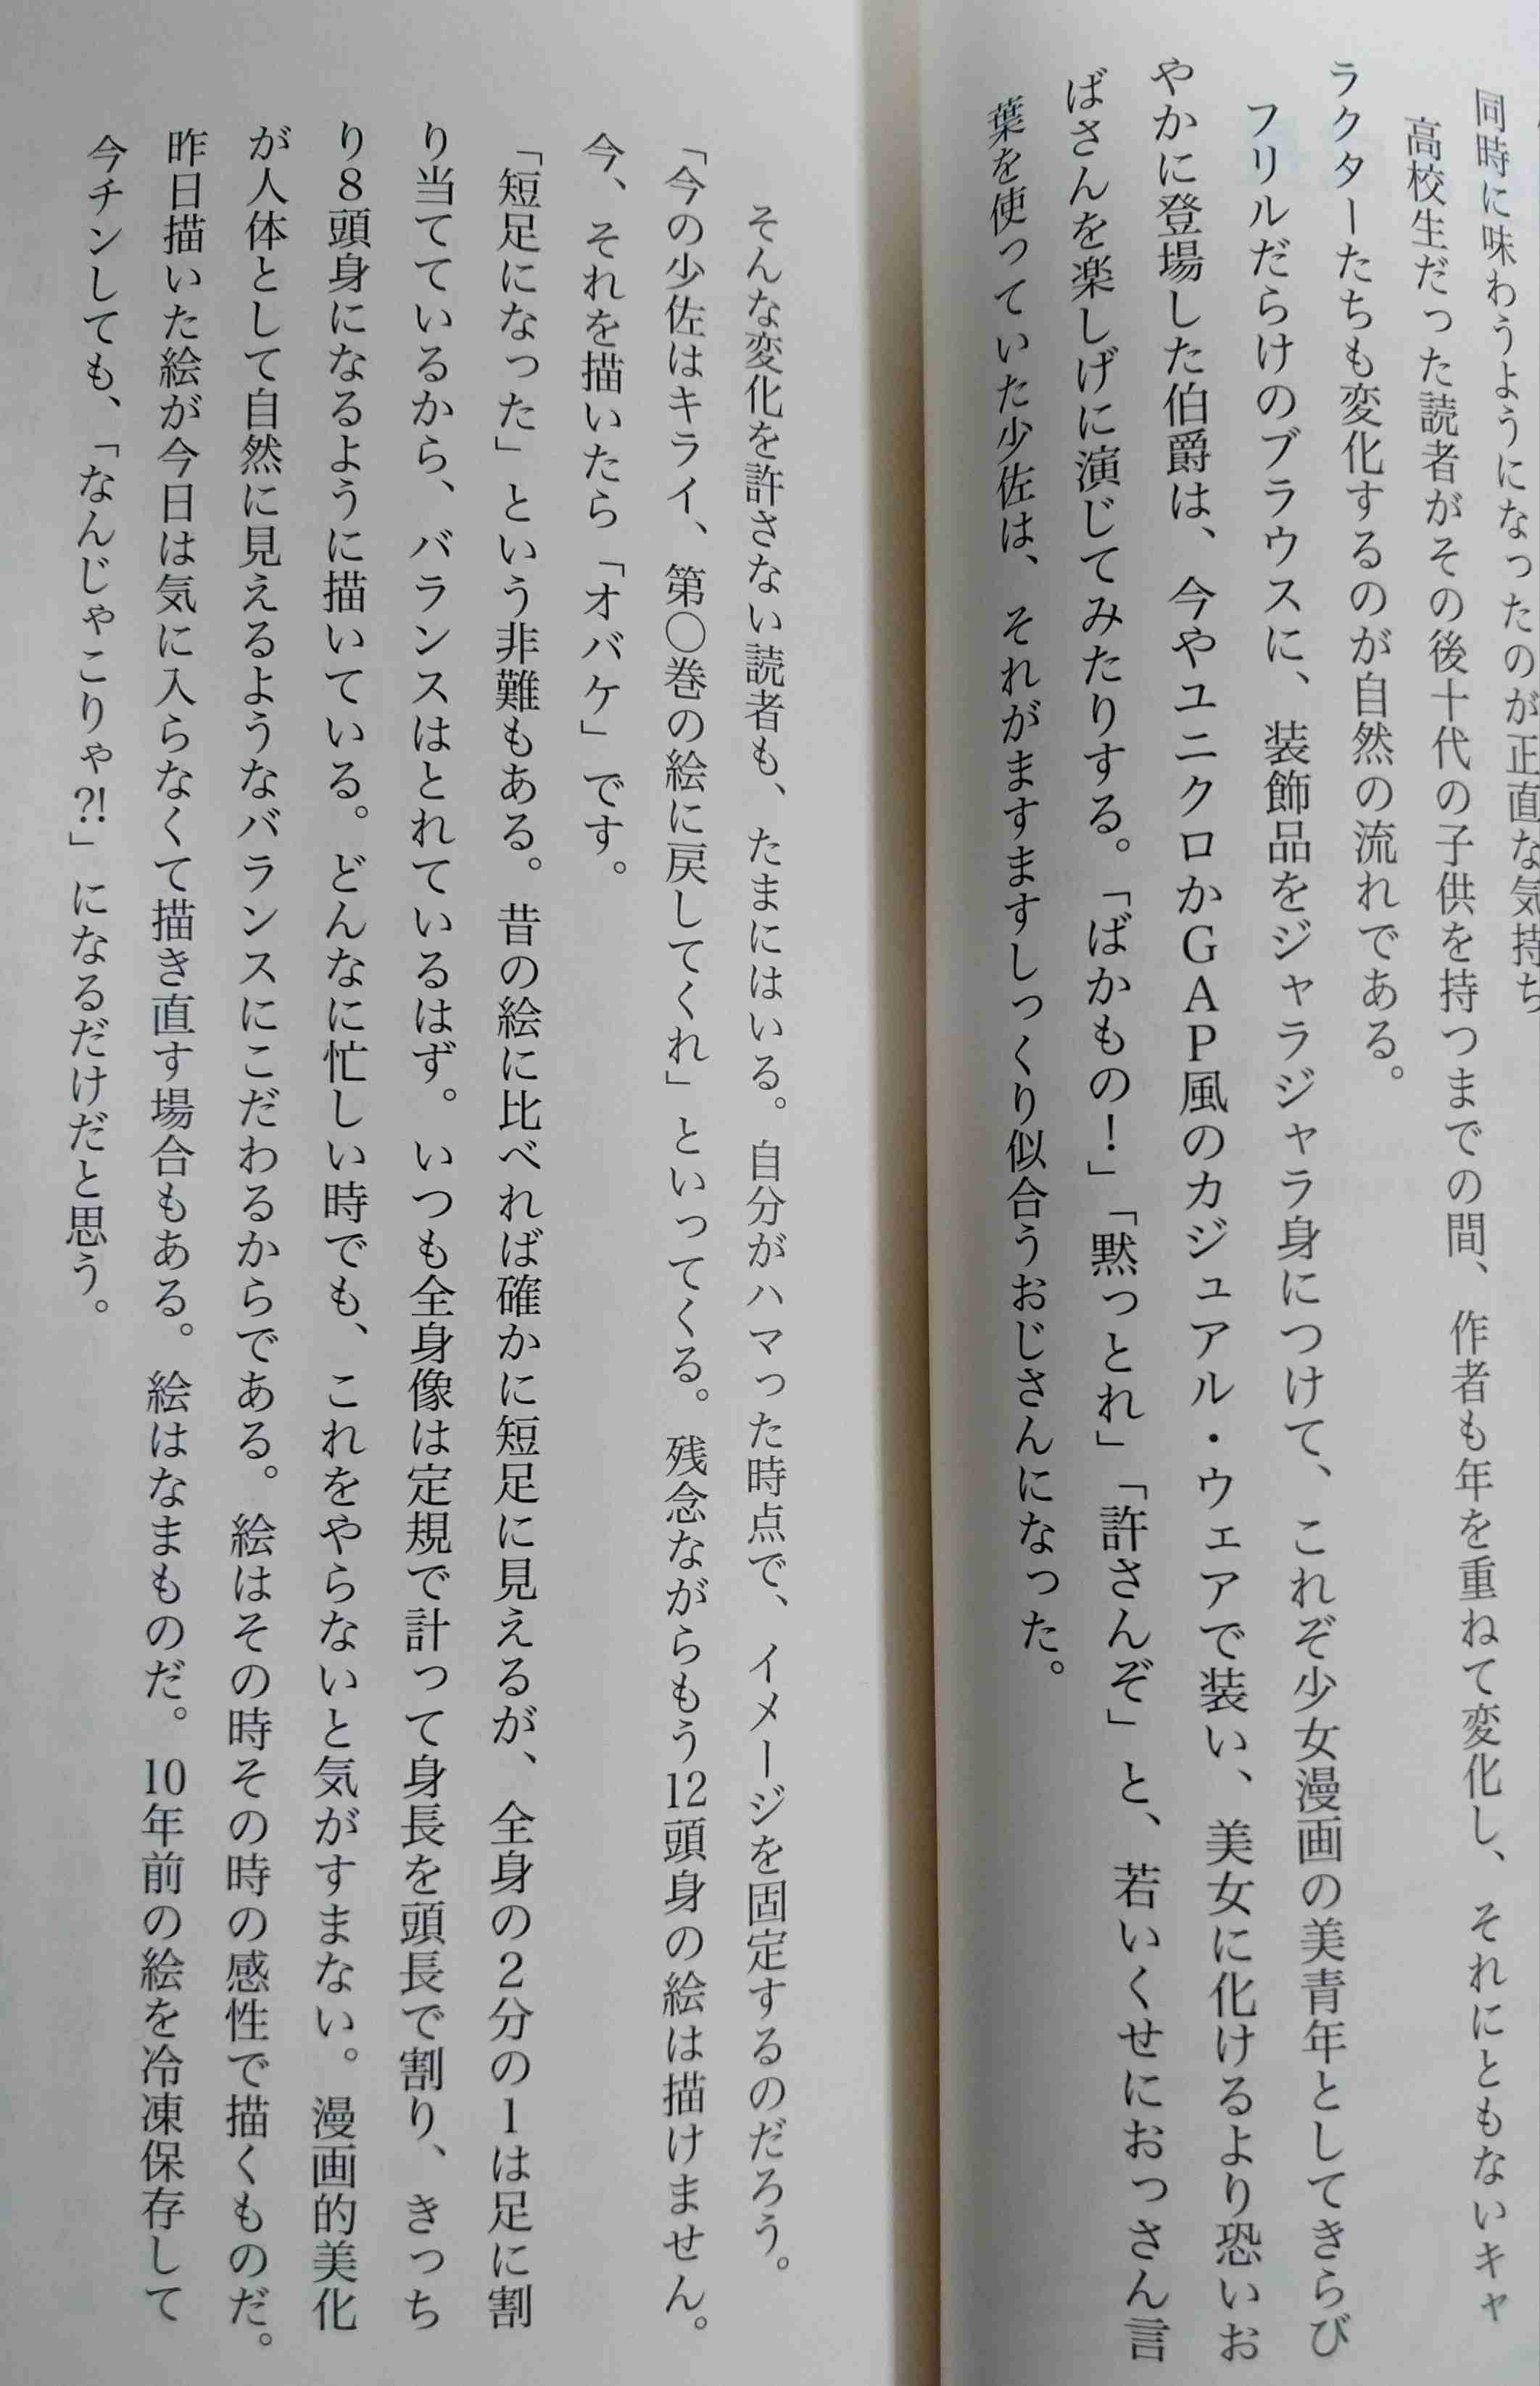 同時に味わうようになったのが正直な気持ち
高校生だった読者がその後十代の子供を持つまでの間、作者も年を重ねて変化し、それにともないキャ
ラクターたちも変化するのが自然の流れである。
フリルだらけのブラウスに、装飾品をジャラジャラ身につけて、これぞ少女漫画の美青年としてきらび
やかに登場した伯爵は、今やユニクロかGAP風のカジュアル・ウェアで装い、美女に化けるより恐いお
ばさんを楽しげに演じてみたりする。「ばかもの!」「黙っとれ」「許さんぞ」と、若いくせにおっさん言
葉を使っていた少佐は、それがますますしっくり似合うおじさんになった。
そんな変化を許さない読者も、たまにはいる。自分がハマった時点で、イメージを固定するのだろう。
「今の少佐はキライ、第〇巻の絵に戻してくれ」といってくる。残念ながらもう12頭身の絵は描けません。
今、それを描いたら「オバケ」です。
「短足になった」という非難もある。昔の絵に比べれば確かに短足に見えるが、全身の2分の1は足に割
り当てているから、バランスはとれているはず。いつも全身像は定規で計って身長を頭長で割り、きっち
り8頭身になるように描いている。どんなに忙しい時でも、これをやらないと気がすまない。漫画的美化
が人体として自然に見えるようなバランスにこだわるからである。絵はその時その時の感性で描くものだ。
昨日描いた絵が今日は気に入らなくて描き直す場合もある。絵はなまものだ。10年前の絵を冷凍保存して
今チンしても、「なんじゃこりゃ?!」になるだけだと思う。